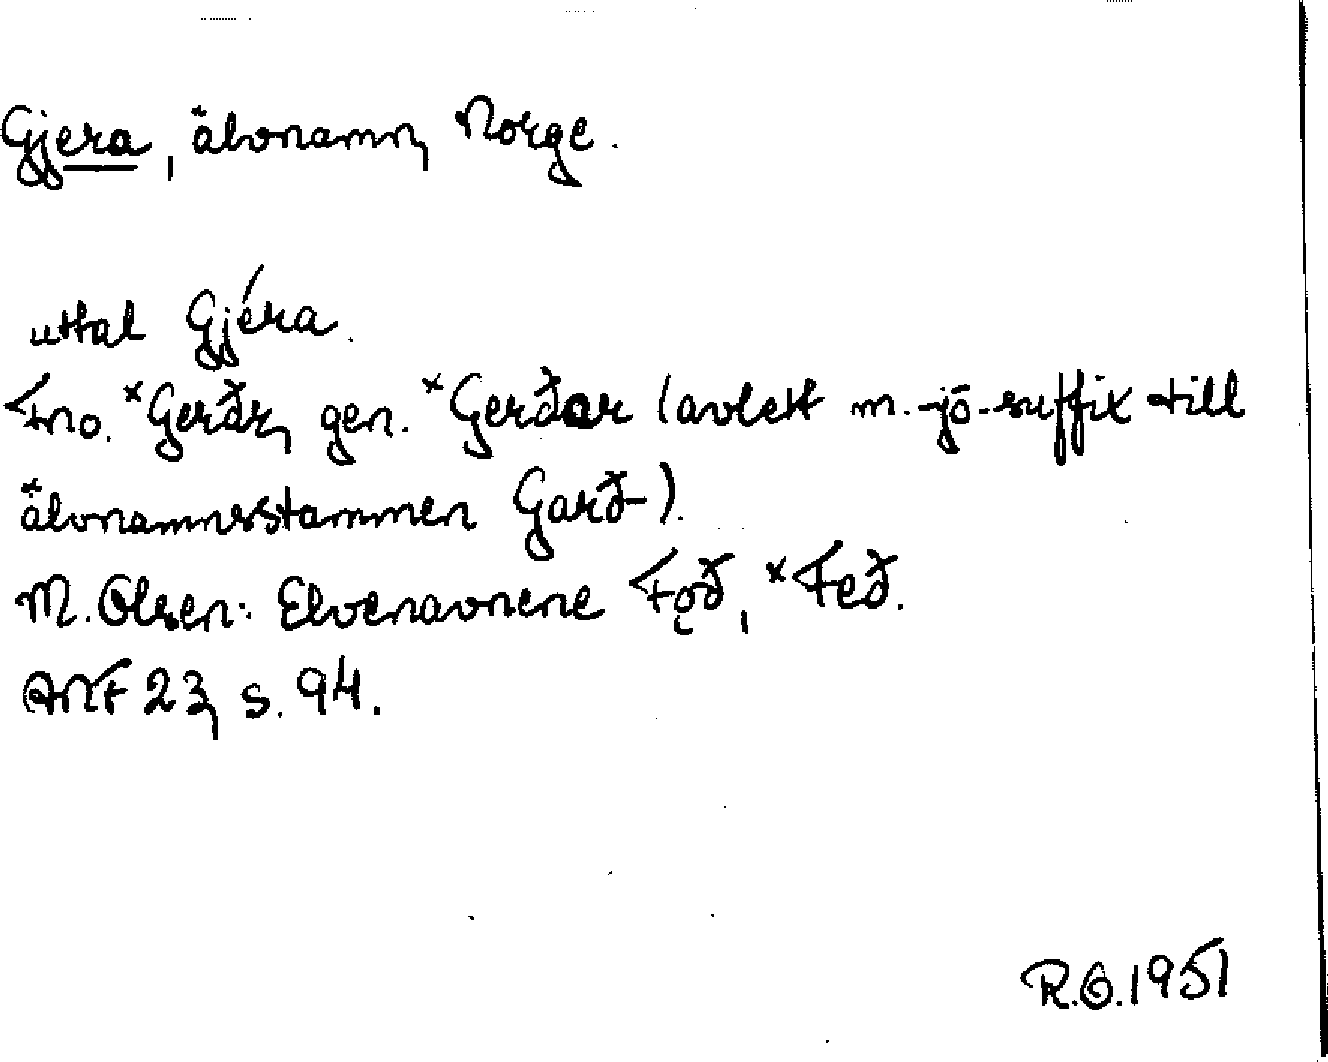 Gjera, älvnamn, Norge.
uttal Gjéra.
Fno. *Gerðr, gen. *Gerðar (avlett m. -jō-suffix till
älvnamnsstammen Garð-).
M. Olsen: Elvenavnene Fǫð, *Feð.
ANF 23, s. 94.
R.O. 1951